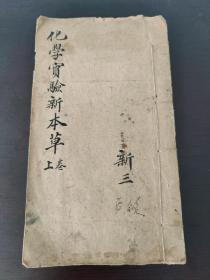 化學實驗新本草
上卷
新
三